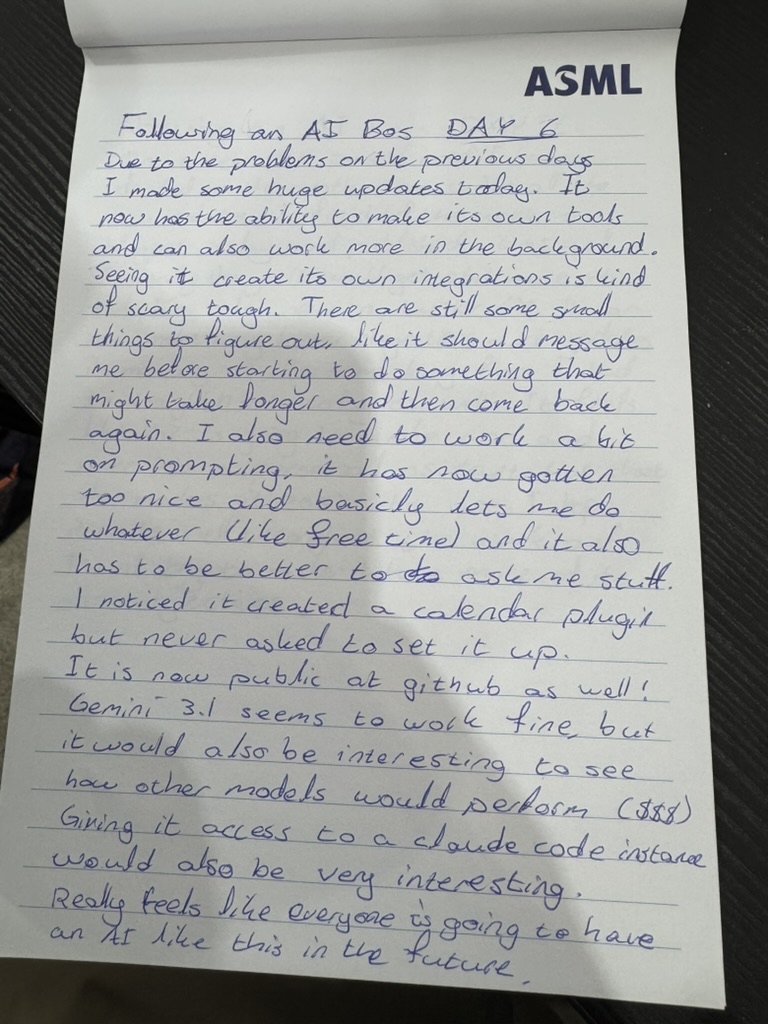 ASML
Following an AI Bos DAY 6
Due to the problems on the previous days
I made some huge updates today. It
now has the ability to make its own tools
and can also work more in the background.
Seeing it create its own integrations is kind
of scary tough. There are still some small
things to figure out, like it should message
me before starting to do something that
might take longer and then come back
again. I also need to work a bit
on prompting, it has now gotten
too nice and basicly lets me do
whatever (like free time) and it also
has to be better to ask me stuff.
I noticed it created a calendar plugin
but never asked to set it up.
It is now public at github as well!
Gemini 3.1 seems to work fine, but
it would also be interesting to see
how other models would perform ($$$)
Giving it access to a claude code instance
would also be very interesting.
Really feels like everyone is going to have
an AI like this in the future.